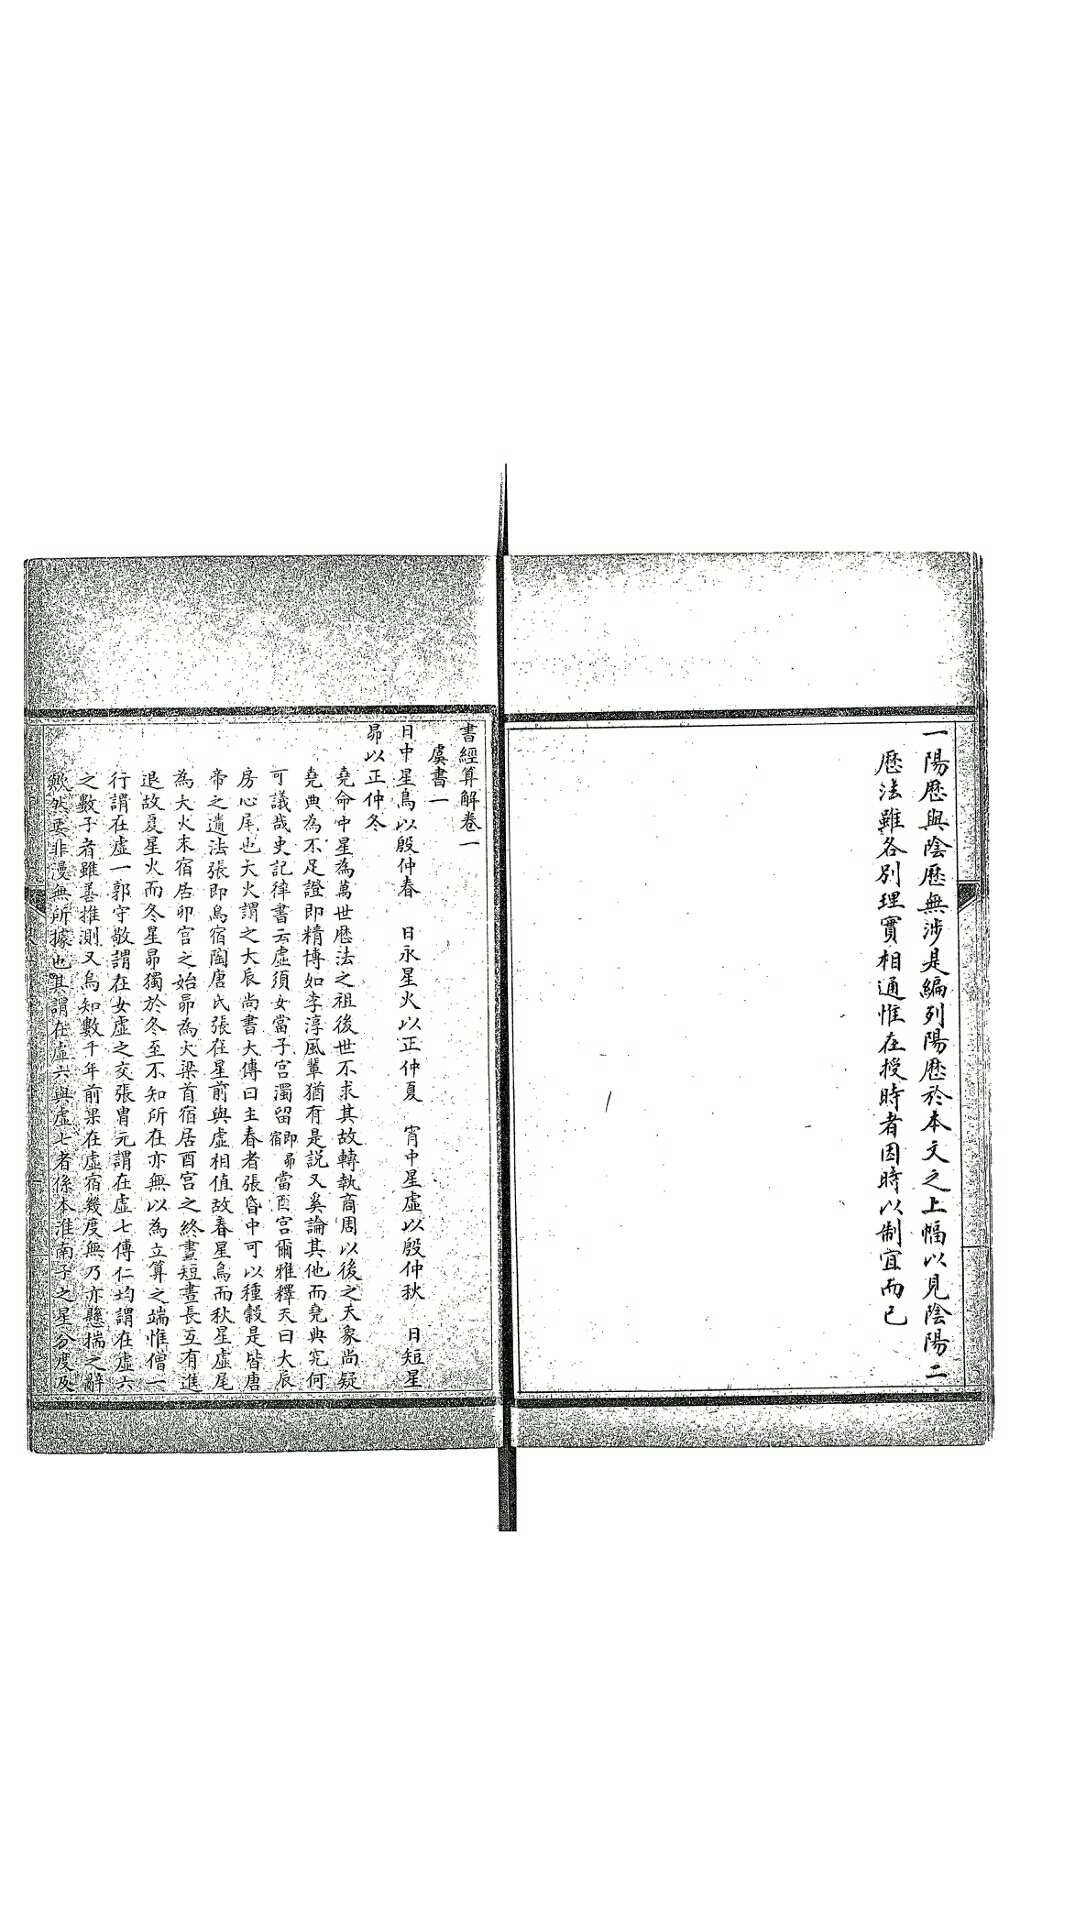 一陽厯與陰厯無涉是編列陽厯於本文之上幅以見陰陽二
厯法雖各別理實相通惟在授時者因時以制宜而已
書經算解卷一
虞書一
日中星鳥以殷仲春　日永星火以正仲夏　宵中星虛以殷仲秋　日短星
昴以正仲冬
堯命中星為萬世厯法之祖後世不求其故轉執商周以後之天象尚疑
堯典為不足證即精博如李淳風輩猶有是説又奚論其他而堯典究何
可議哉史記律書云虛須女當子宮濁留即昴宿當酉宮爾雅釋天曰大辰
房心尾也大火謂之大辰尚書大傳曰主春者張昏中可以種穀是皆唐
帝之遺法張即鳥宿陶唐氏張在星前與虛相值故春星鳥而秋星虛尾
為大火末宿居卯宮之始昴為大梁首宿居酉宮之終晝短晝長互有進
退故夏星火而冬星昴獨於冬至不知所在亦無以為立算之端惟僧一
行謂在虛一郭守敬謂在女虛之交張胄元謂在虛七傅仁均謂在虛六
之數子者雖善推測又烏知數千年前果在虛宿幾度無乃亦懸揣之辭
歟然要非漫無所據也其謂在虛六與虛七者係本淮南子之星分度及